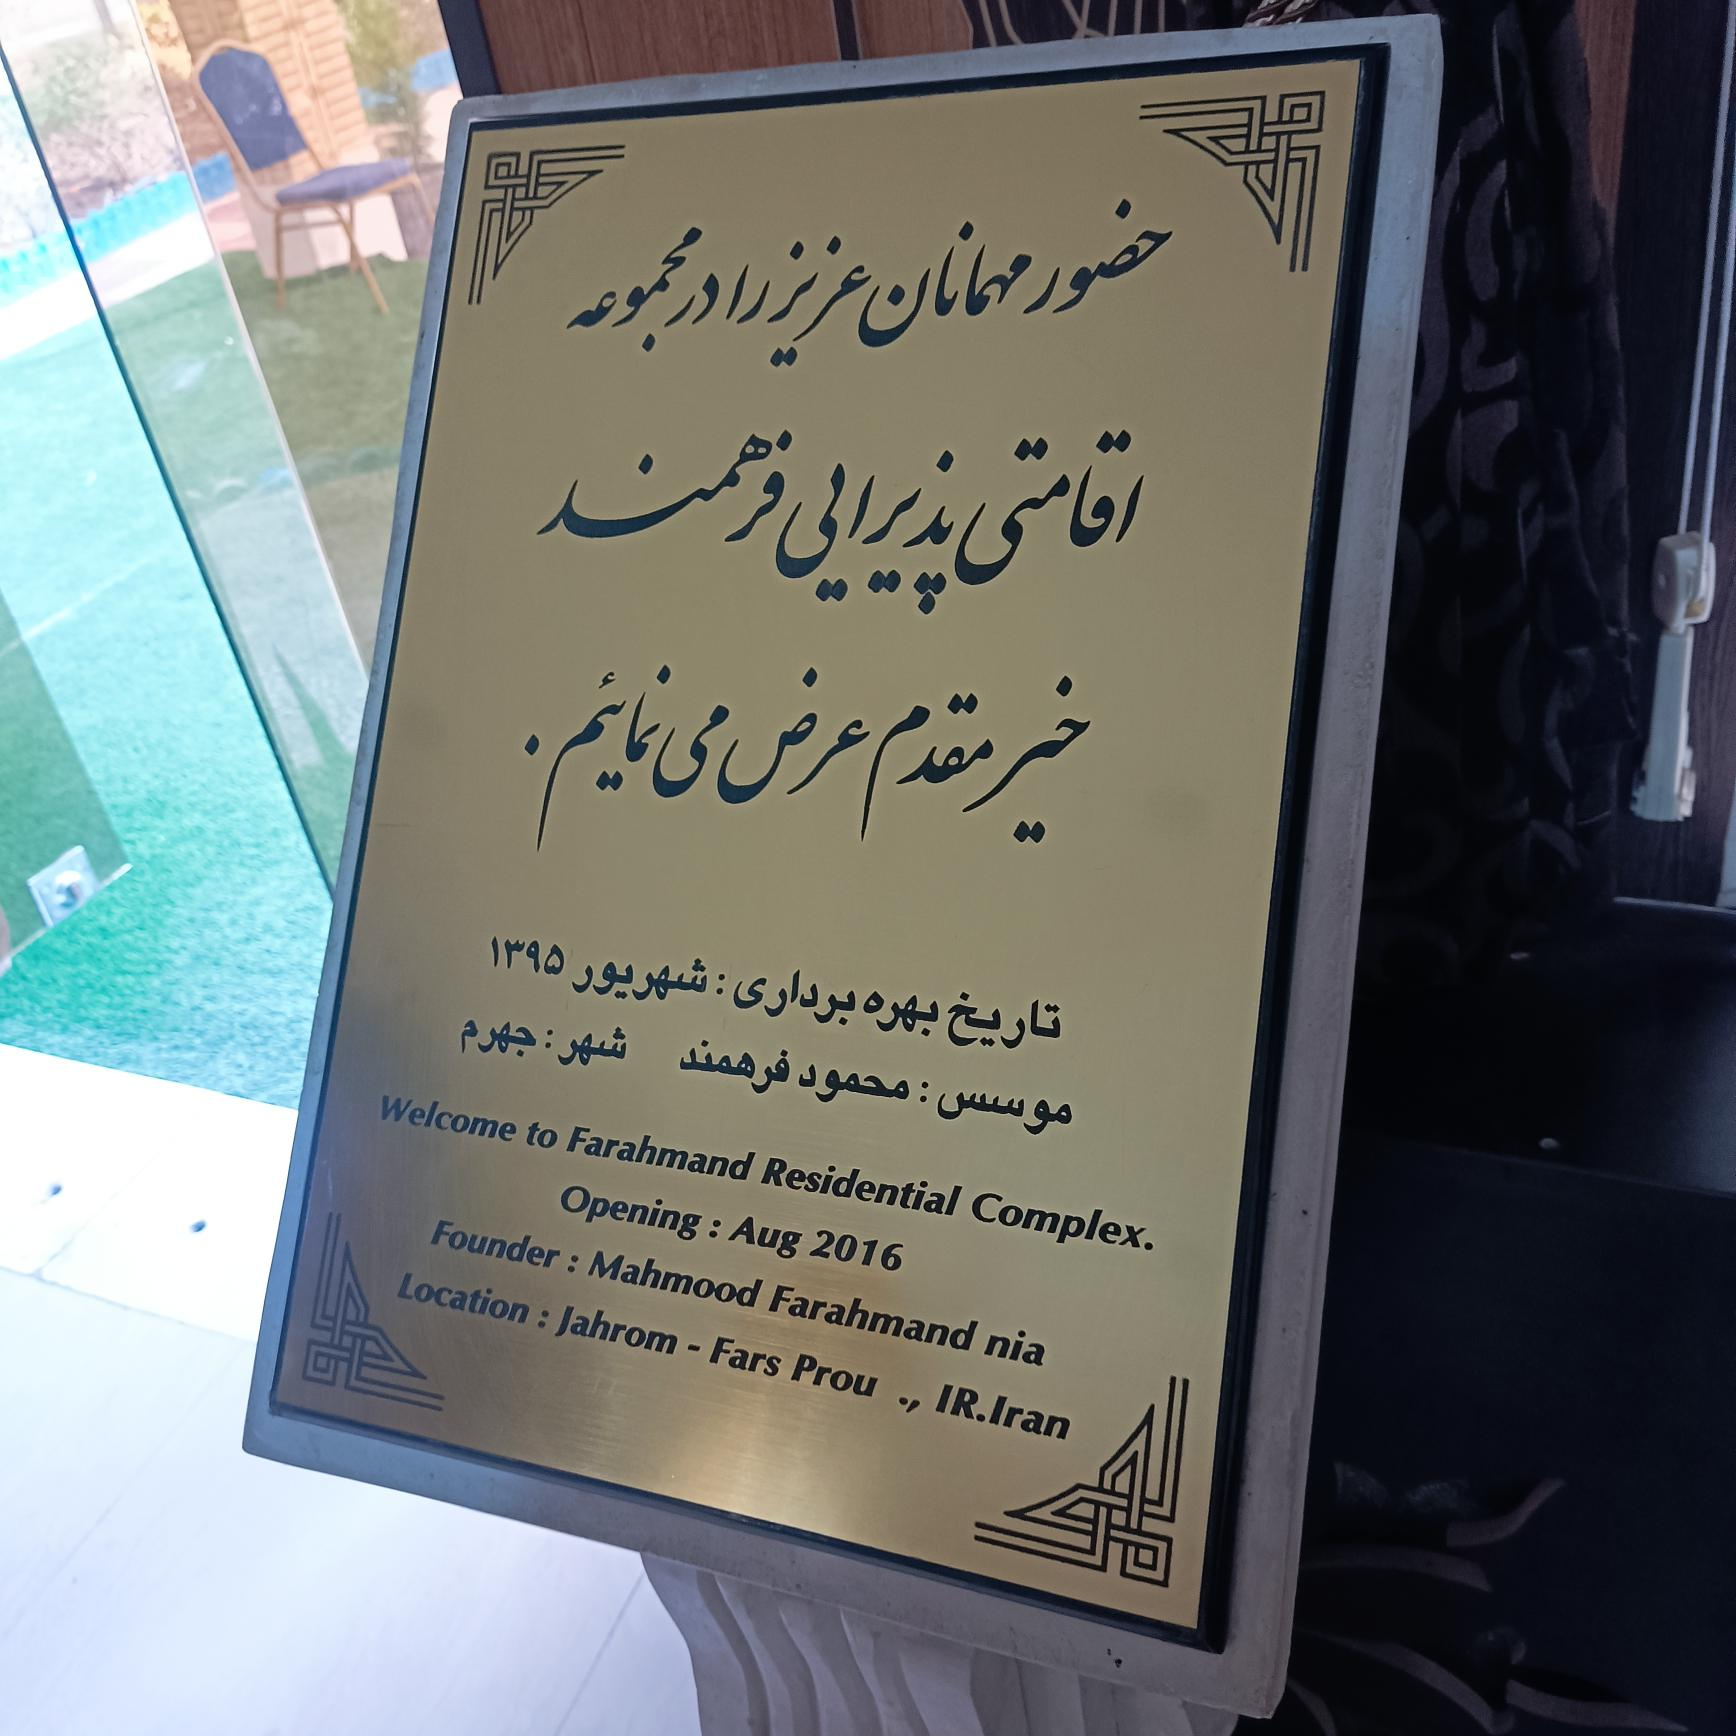 حضور مهمانان عزیز را در مجموعه
اقامتی پذیرایی فرهمند
خیر مقدم عرض می نمائیم .
تاریخ بهره برداری : شهریور ۱۳۹۵
موسس : محمود فرهمند شهر : جهرم
Welcome to Farahmand Residential Complex.
Opening : Aug 2016
Founder : Mahmood Farahmand nia
Location : Jahrom - Fars Prou ., IR.Iran